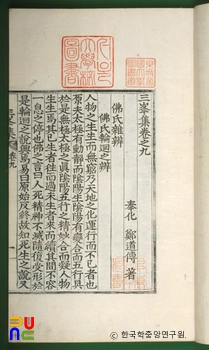 三峯集卷之九
奉化 鄭道傳 著
佛氏雜辨
佛氏輪廻之辨
人物之生生而無窮乃天地之化運行而不已者也
原夫太極有動靜而陰陽生陰陽有變合而五行具
於是無極太極之眞陰陽五行之精妙合而凝人物
生生焉其已生者往而過未生者來而續其間不容
一息之停也佛之言曰人死精神不滅隨復受形於
是輪廻之說興焉易曰原始反終故知死生之說又
三峯集 卷九
ⓒ 한국학중앙연구원